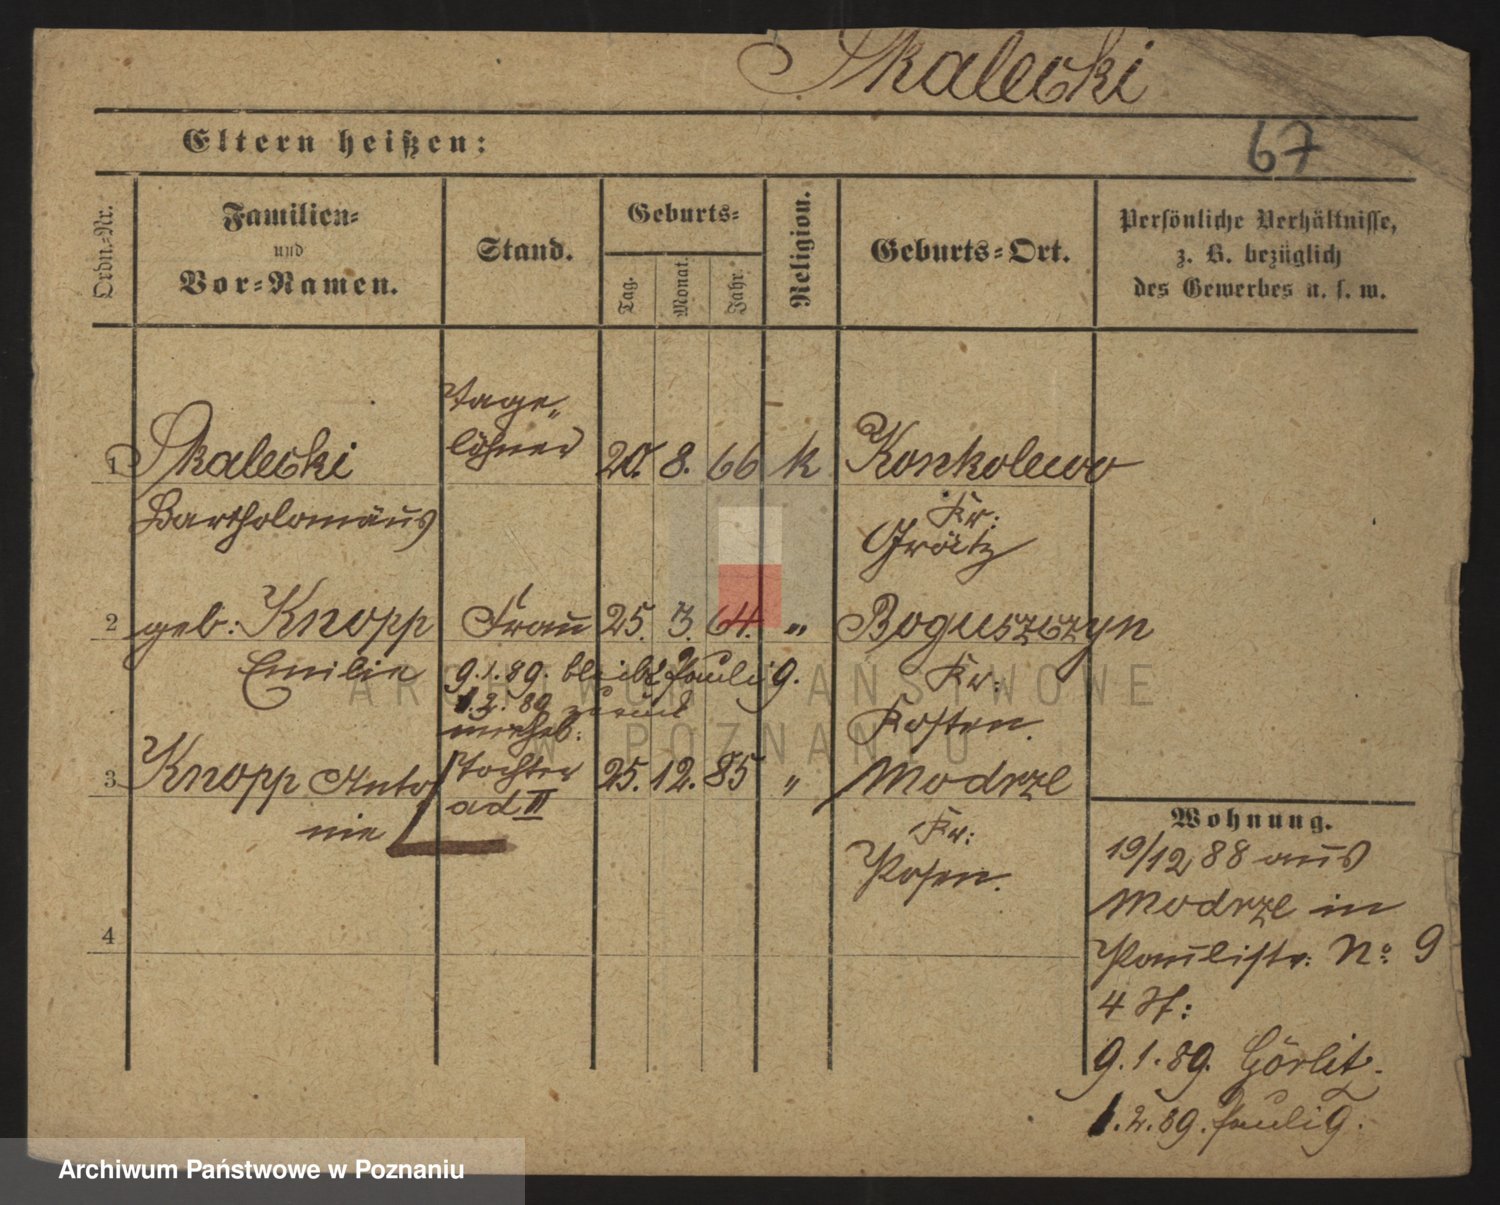 Skalecki
Eltern heißen:
67
Ordn.-Nr.
Familien-
und
Vor-Namen.
Stand.
Geburts-
Tag.
Monat.
Jahr.
Religion.
Geburts-Ort.
Persönliche Verhältnisse,
z. B. bezüglich
des Gewerbes u. s. w.
Tage-
löhner
1 Skalecki 20. 8. 66 k Konkolewo
Bartholomäus
Kr:
Grätz
2 geb: Knopp Frau 25. 3. 64. " Boguszczyn
Emilie
9.1.89. bleibt Pauli 9.
1.2.89 zurück
Kr:
Kosten.
unehel:
3 Knopp Anto Tochter 25. 12. 85 " Modrze
nie
ad II
Kr:
Posen.
4
Wohnung.
19/12 88 aus
Modrze in
Paulistr: No 9
4 St:
9.1.89. Görlit.
1.2.89. Pauli 9.
ARCHIWUM PAŃSTWOWE
W POZNANIU
Archiwum Państwowe w Poznaniu